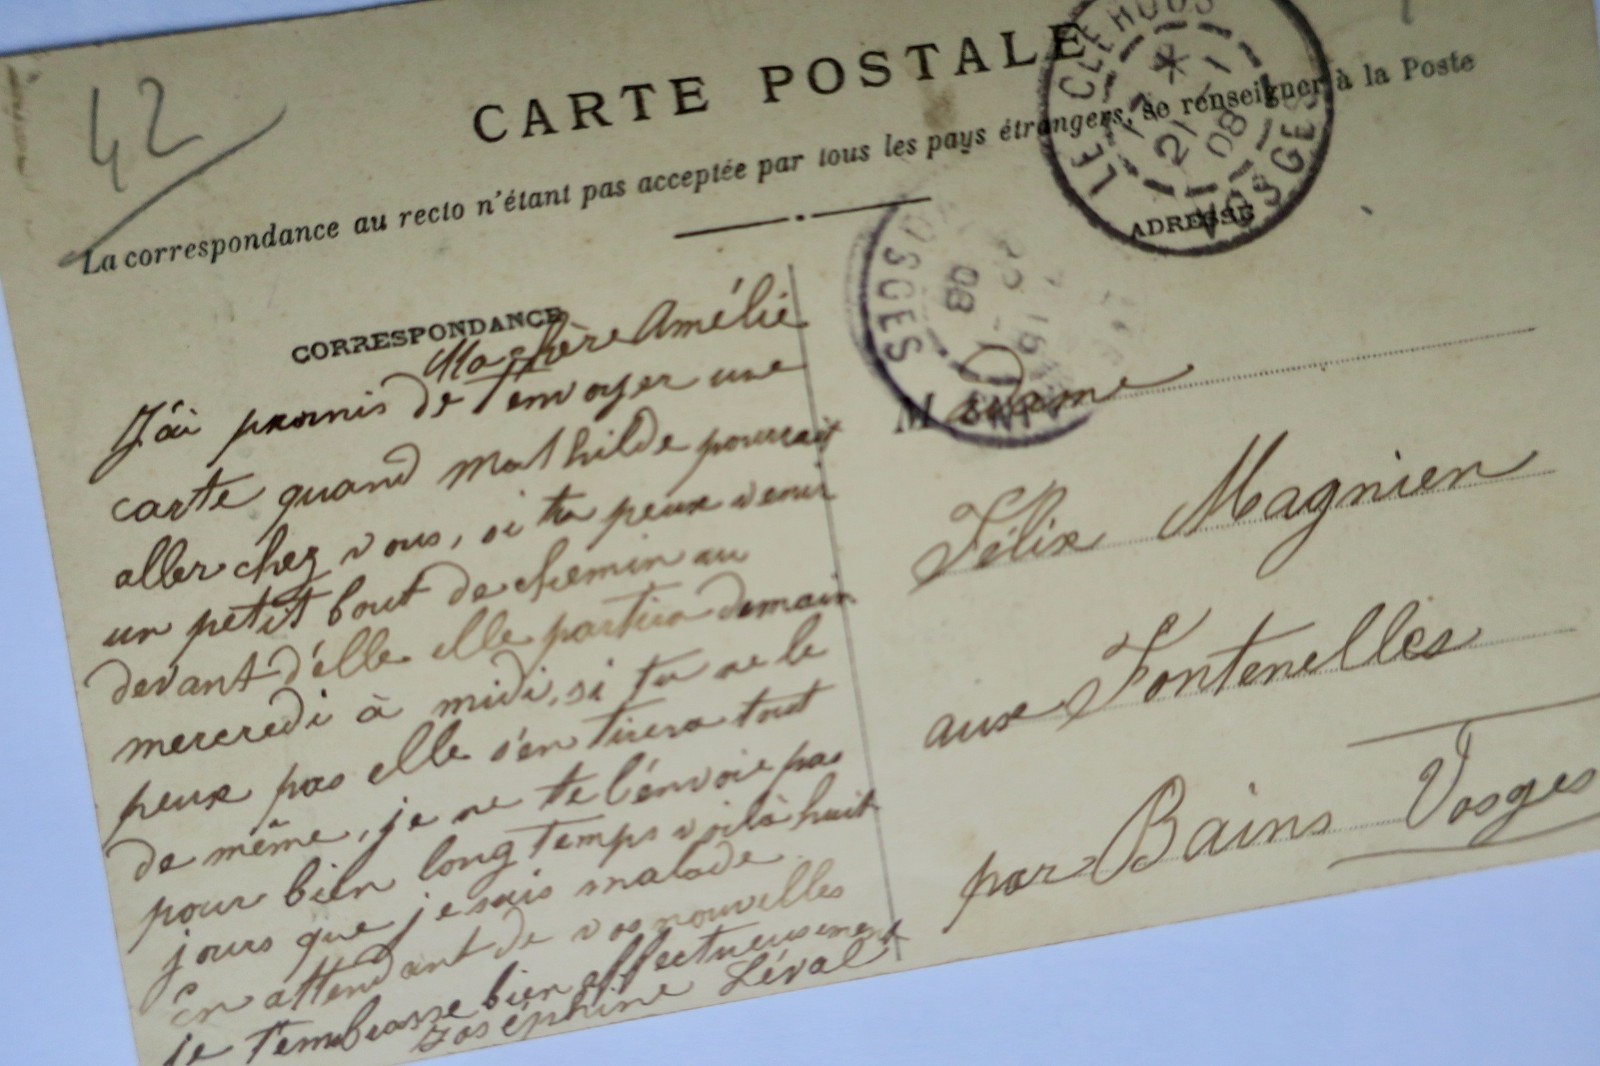 42
CARTE POSTALE
La correspondance au recto n'étant pas acceptée par tous les pays étrangers, se renseigner à la Poste
CORRESPONDANCE
ADRESSE
LE CLERJUS
21 -1
08
VOSGES
OSGES
08
Ma chère Amélie
J'ai promis de t'envoyer une
carte quand Mathilde pourrait
aller chez vous, si tu peux venir
un petit bout de chemin au
devant d'élle elle partira demain
mercredi à midi, si tu ne le
peux pas elle s'en tirera tout
de même, je ne te l'envoie pas
pour bien longtemps voilà huit
jours que je suis malade
En attendant de vos nouvelles
je t'embrasse bien affectueusement
Joséphine Léval
Madame
Félix Magnien
aux Fontenelles
par Bains Vosges